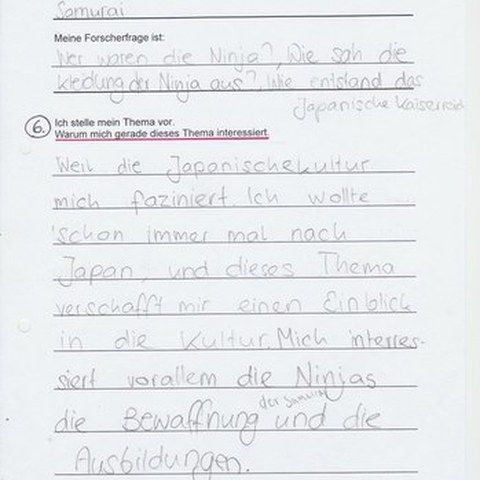 Samurai
Meine Forscherfrage ist:
Wer waren die Ninja? Wie sah die
kledung der Ninja aus? Wie entstand das
Japanische Kaiserreich
6.
Ich stelle mein Thema vor.
Warum mich gerade dieses Thema interessiert.
Weil die Japanischekultur
mich faziniert. Ich wollte
schon immer mal nach
Japan, und dieses Thema
verschafft mir einen Einblick
in die Kultur. Mich interres-
siert vorallem die Ninjas
der Samurai
die Bewaffnung und die
Ausbildungen.